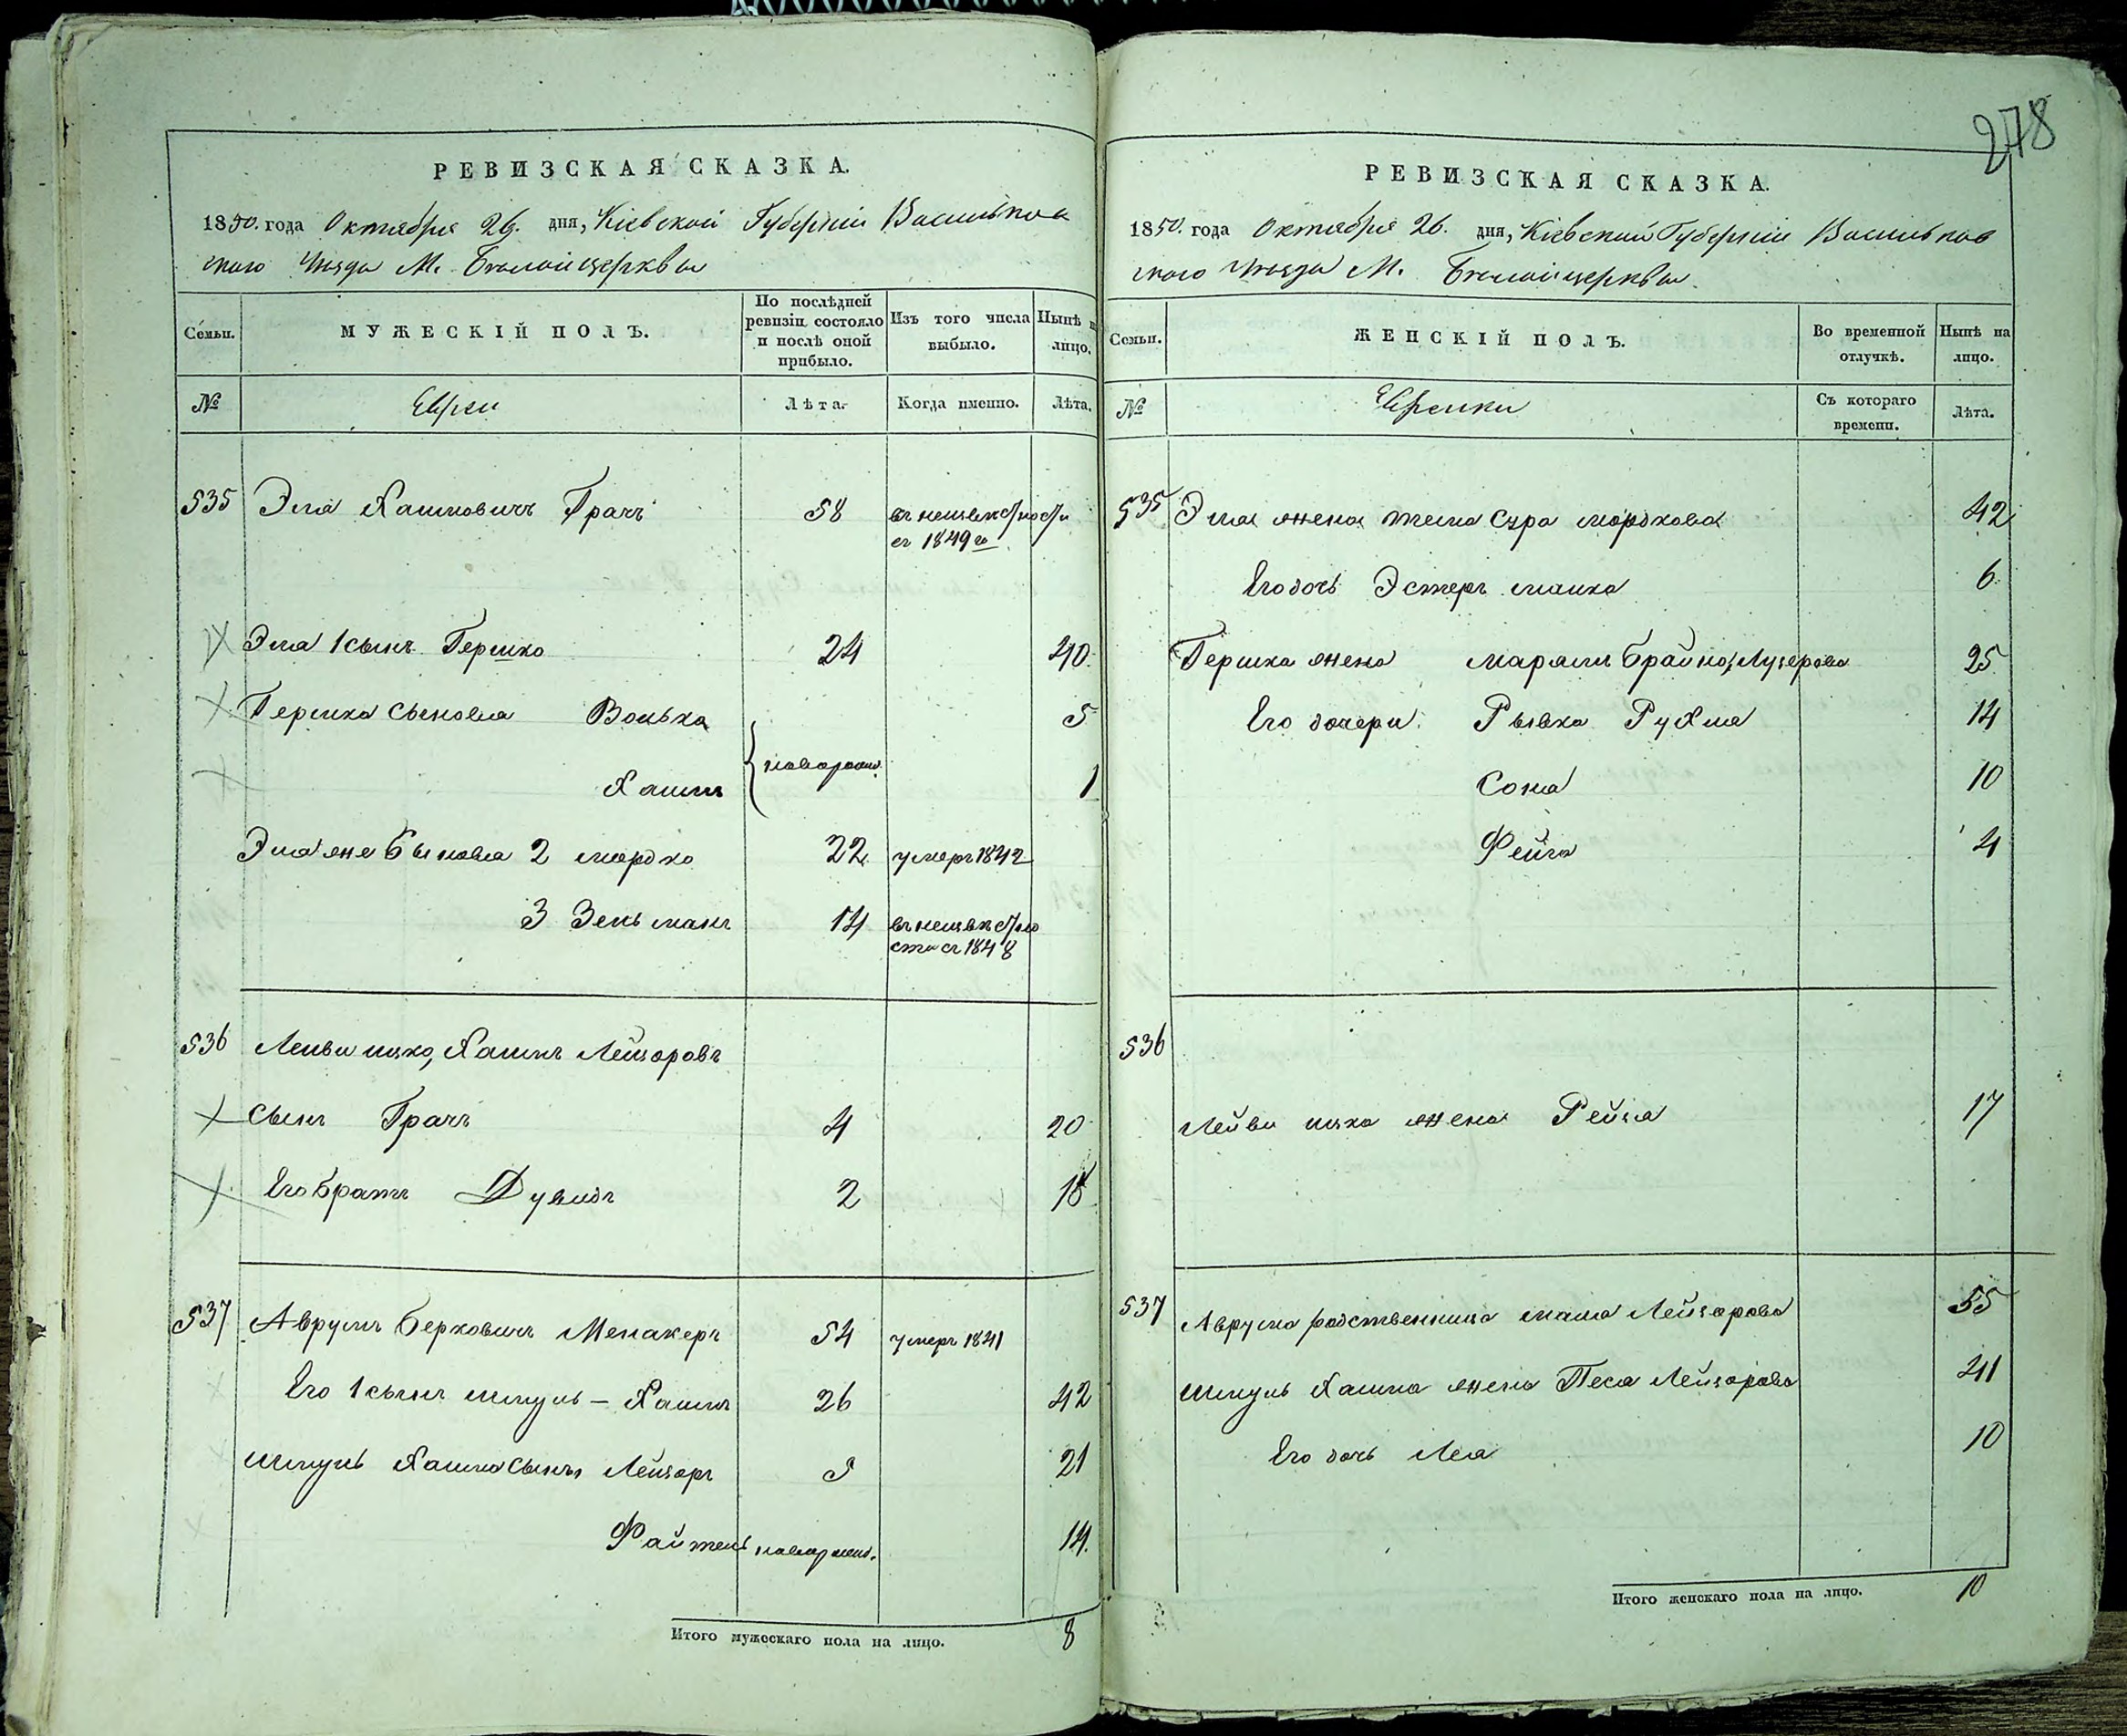 278
РЕВИЗСКАЯ СКАЗКА.
1850. года Октября 26. дня, Кіевской Губерніи Васильков
скаго Уезда М. Белойцеркви
Семьи.
МУЖЕСКІЙ ПОЛЪ.
По послѣдней ревизіи состояло и послѣ оной прибыло.
Изъ того числа выбыло.
Нынѣ на лицо.
№
Евреи
Лѣта.
Когда именно.
Лѣта.
535 Эля Хаимовичъ Грачъ 58 въ неизвестности
съ 1849 го
Эля 1 сынъ Гершко 24 40
Гершка сыновья Волько 5
новорожд.
Хаимъ 1
Эля же сыновья 2 Мордко 22 умеръ 1842
3 Зельманъ 14 въ неизвестно
сти съ 1848
536 Лейви ицко, Хаимъ Лейзоровъ
сынъ Грачъ 4 20
Его братъ Дувидъ 2 18
537 Аврумъ Берковичъ Менакеръ 54 умеръ 1841
Его 1 сынъ Шмуль - Хаимъ 26 42
Шмуль Хаима сынъ Лейзоръ 5 21
Файтель новорожд. 14.
Итого мужескаго пола на лицо. 8
РЕВИЗСКАЯ СКАЗКА.
1850. года Октября 26. дня, Кіевской Губерніи Васильков
скаго Уезда М. Белойцеркви.
Семьи.
ЖЕНСКІЙ ПОЛЪ.
Во временной отлучкѣ.
Нынѣ на лицо.
№
Еврейки
Съ котораго времени.
Лѣта.
535 Эля жена Сура Мордкова 42
Его дочь Эстеръ Малка 6
Гершка жена Марямъ Брайна, Лузерова 25
Его дочери Рывка Рухля 14
Соня 10
Фейга 4
536
Лейви ицка жена Рейзя 17
537 Аврума родственница Маша Лейзорова 55
Шмуль Хаима жена Песа Лейзорова 41
Его дочь Лея 10
Итого женскаго пола на лицо. 10